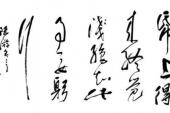 纸上得
来终觉
浅绝知此
事要躬
行